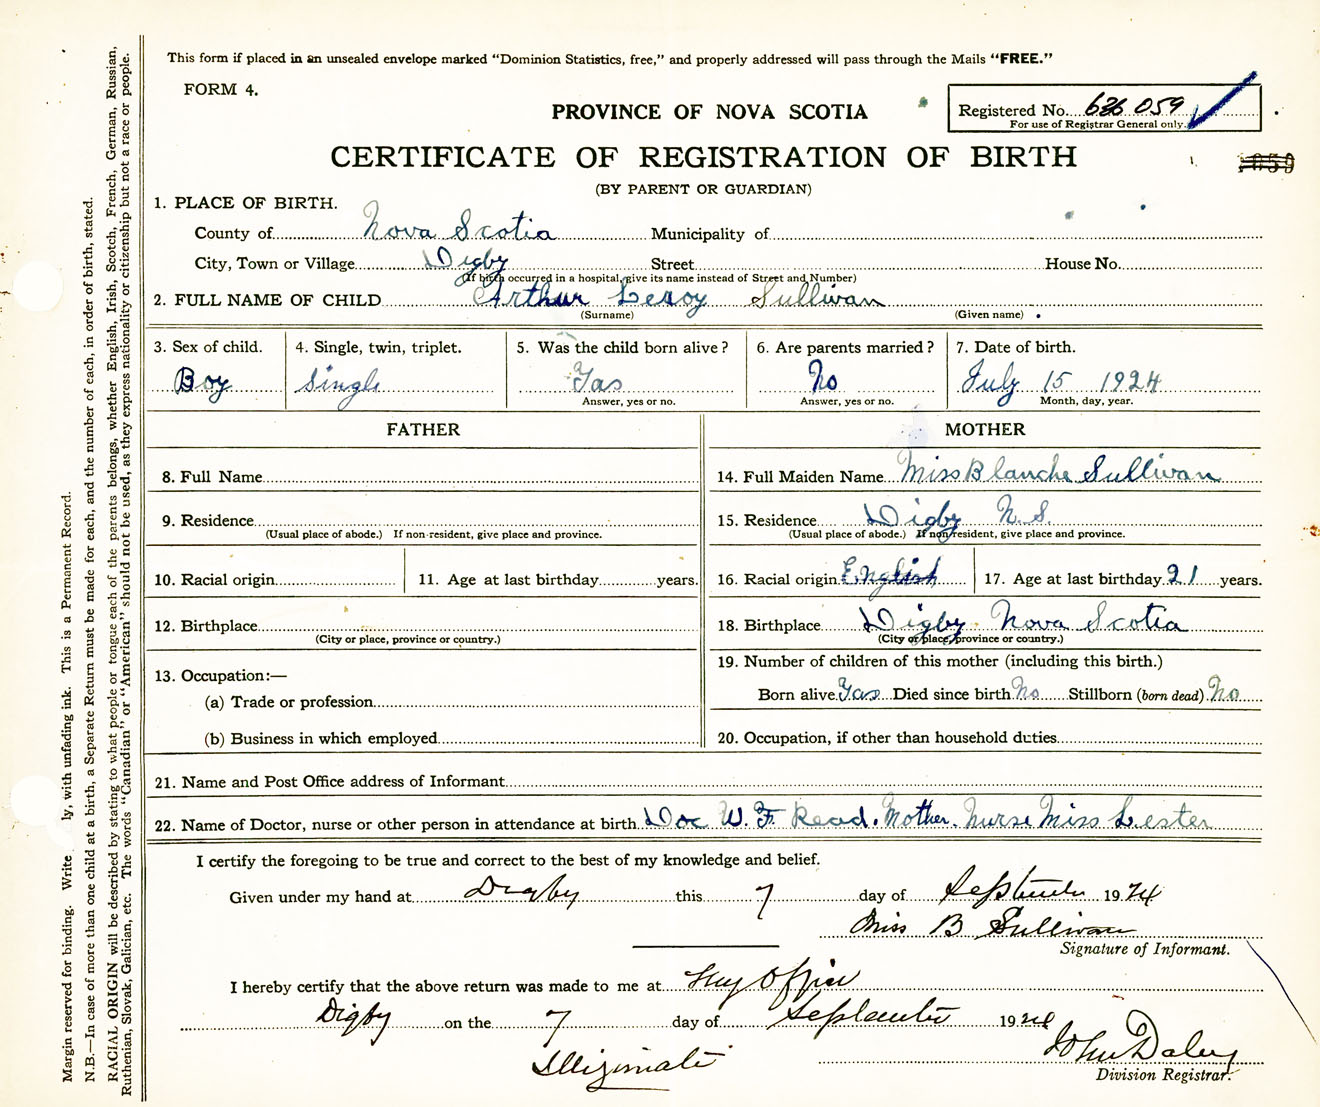 This form if placed in an unsealed envelope marked “Dominion Statistics, free,” and properly addressed will pass through the Mails “FREE.”
FORM 4.
PROVINCE OF NOVA SCOTIA
Registered No. 636 059
For use of Registrar General only.
CERTIFICATE OF REGISTRATION OF BIRTH
(BY PARENT OR GUARDIAN)
1. PLACE OF BIRTH.
County of Nova Scotia Municipality of
City, Town or Village Digby Street House No.
(If birth occurred in a hospital, give its name instead of Street and Number)
2. FULL NAME OF CHILD Arthur Leroy Sullivan
(Surname) (Given name)
3. Sex of child. 4. Single, twin, triplet. 5. Was the child born alive? 6. Are parents married? 7. Date of birth.
Boy Single Yas No July 15 1924
Answer, yes or no. Answer, yes or no. Month, day, year.
FATHER MOTHER
8. Full Name 14. Full Maiden Name Miss Blanche Sullivan
9. Residence 15. Residence Digby N.S.
(Usual place of abode.) If non-resident, give place and province. (Usual place of abode.) If non-resident, give place and province.
10. Racial origin 11. Age at last birthday years. 16. Racial origin English 17. Age at last birthday 21 years.
12. Birthplace 18. Birthplace Digby Nova Scotia
(City or place, province or country.) (City or place, province or country.)
19. Number of children of this mother (including this birth.)
13. Occupation:—
(a) Trade or profession Born alive Yas Died since birth No Stillborn (born dead) No
(b) Business in which employed 20. Occupation, if other than household duties
21. Name and Post Office address of Informant
22. Name of Doctor, nurse or other person in attendance at birth Doc W. F. Read. Mother. Nurse Miss Lester
I certify the foregoing to be true and correct to the best of my knowledge and belief.
Given under my hand at Digby this 7 day of September 1924
Miss B Sullivan
Signature of Informant.
I hereby certify that the above return was made to me at My Office
Digby on the 7 day of September 1924
Illigimate John Daley
Division Registrar.
Margin reserved for binding. Write ly, with unfading ink. This is a Permanent Record.
N.B.—In case of more than one child at a birth, a Separate Return must be made for each, and the number of each, in order of birth, stated.
RACIAL ORIGIN will be described by stating to what people or tongue each of the parents belongs, whether English, Irish, Scotch, French, German, Russian,
Ruthenian, Slovak, Galician, etc. The words “Canadian” or “American” should not be used, as they express nationality or citizenship but not a race or people.